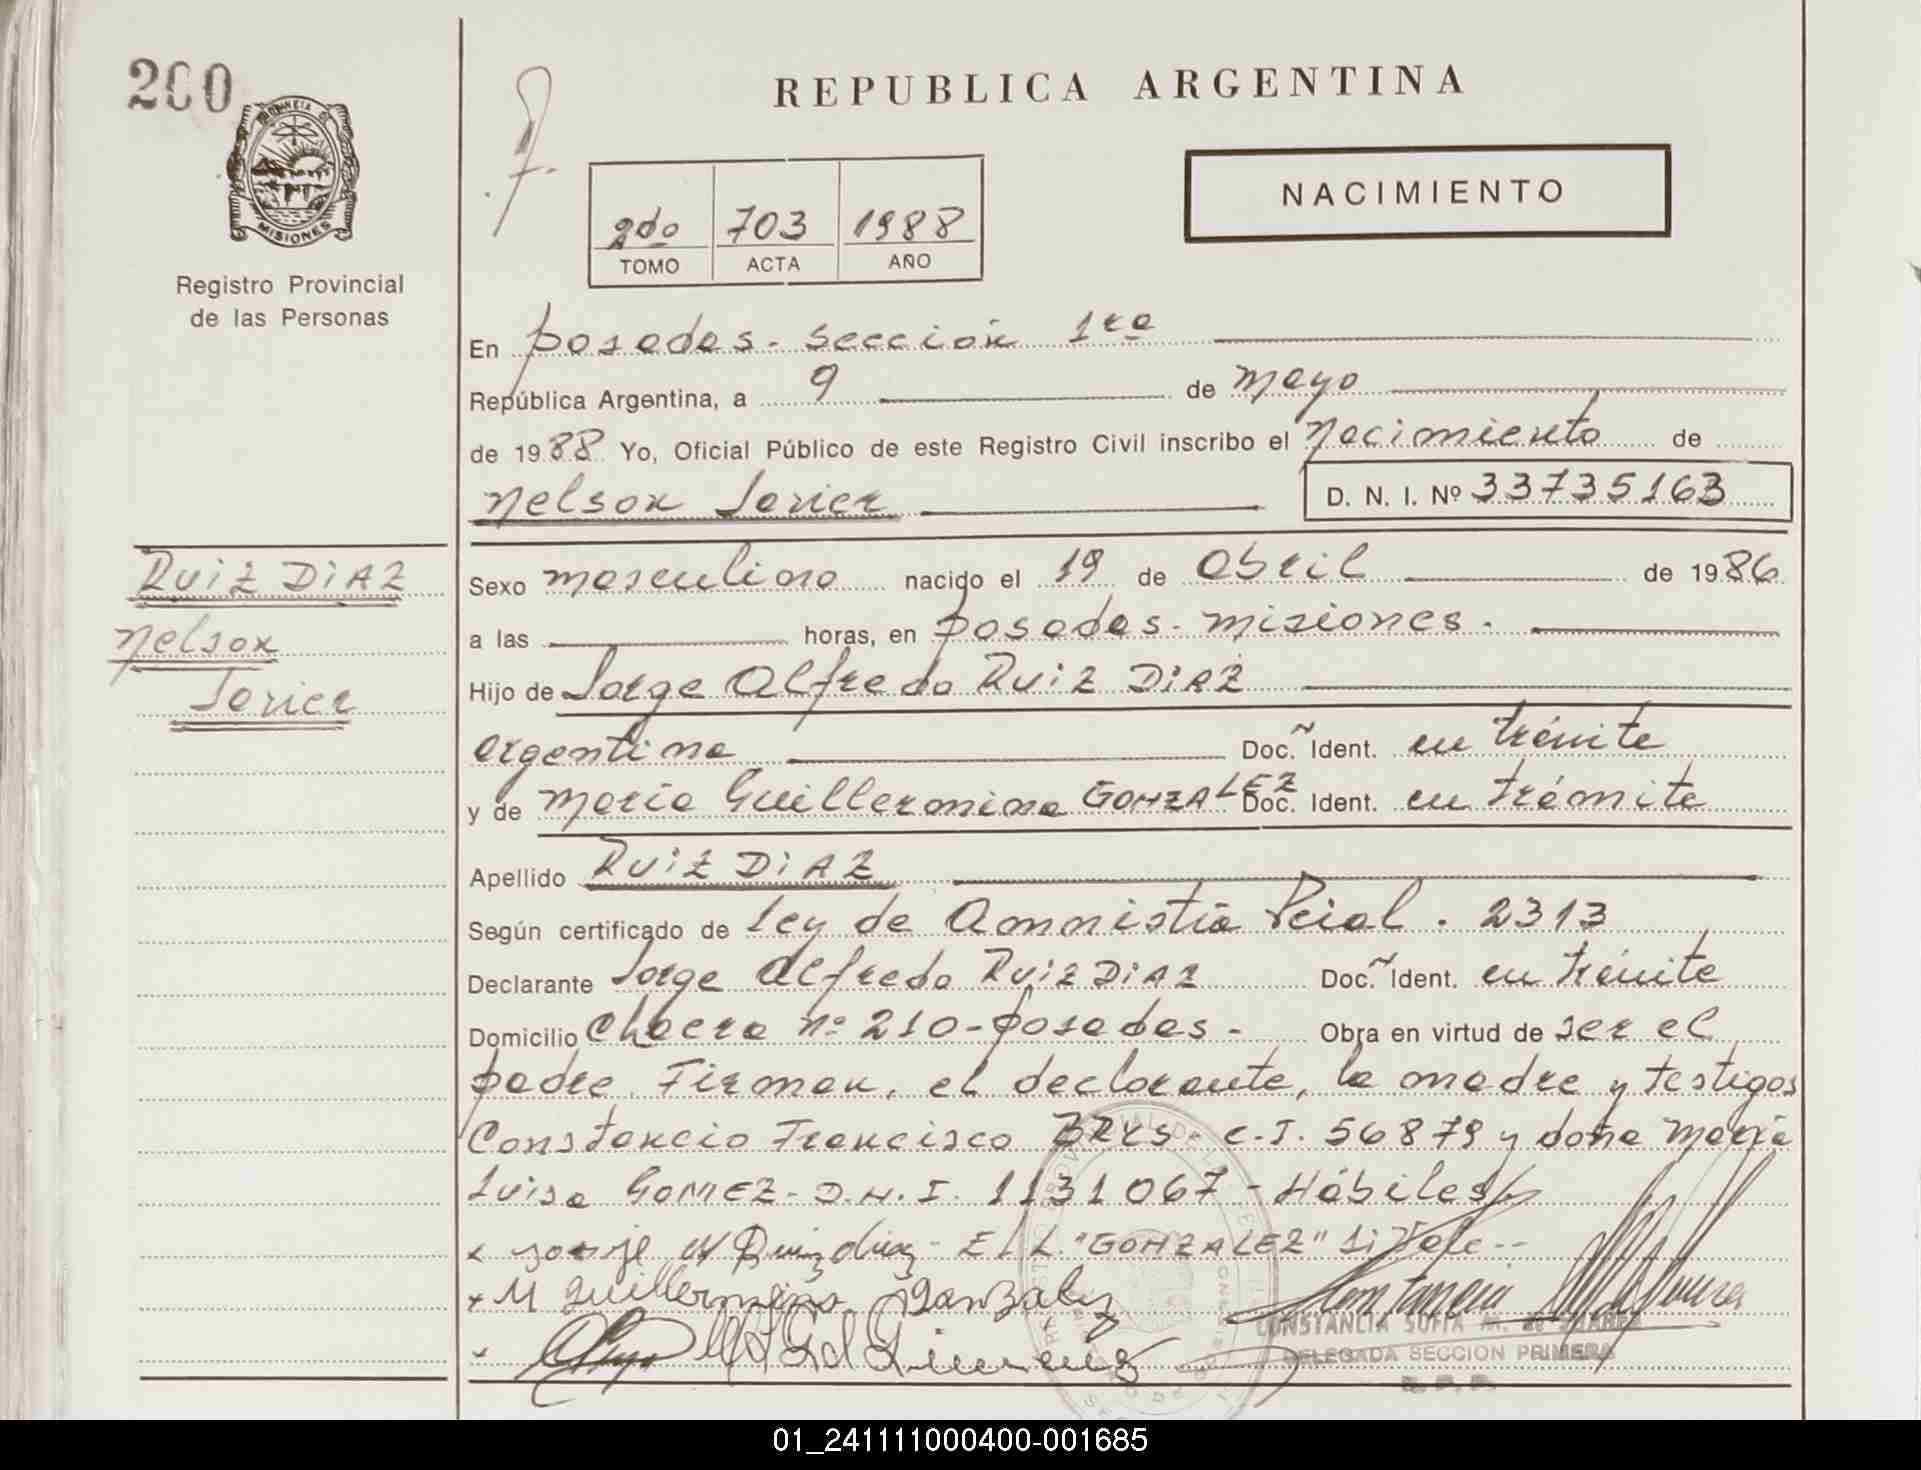 200
REPUBLICA ARGENTINA
PROVINCIA
MISIONES
Registro Provincial
de las Personas
NACIMIENTO
2do 703 1988
TOMO ACTA AÑO
En posadas - sección 1ra
República Argentina, a 9 de mayo
de 1988 Yo, Oficial Público de este Registro Civil inscribo el nacimiento de
nelson Javier D. N. I. Nº 33735163
RUIZ DIAZ
nelson
Javier
Sexo masculino nacido el 19 de abril de 1986
a las horas, en posadas - misiones.
Hijo de Jorge Alfredo RUIZ DIAZ
argentina Doc. Ident. en trámite
y de maria Guillermina GONZALEZ Doc. Ident. en trámite
Apellido RUIZ DIAZ
Según certificado de Ley de Amnistia Pcial. 2313
Declarante Jorge Alfredo RUIZ DIAZ Doc. Ident. en trámite
Domicilio Chacra nº 210 - posadas - Obra en virtud de ser el
padre. Firman, el declarante, la madre y testigos
Constancio Francisco BRYS - C.I. 56879 y doña maria
Luisa GOMEZ - D.N.I. 1131067 - Hábiles
x E/L "GONZALEZ" Si Vale --
x M Guillermina Gonzalez
CONSTANCIA SOFIA M. de
DELEGADA SECCION PRIMERA
R. P. P.
01_241111000400-001685